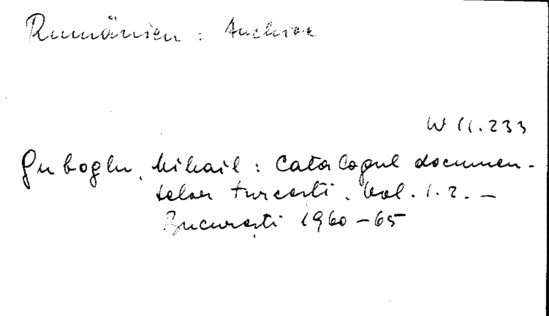 Rumänien : Archive
W 11.233
Guboglu, Mihail : Catalogul documen-
telor turcești. Vol. 1.2. –
București 1960–65